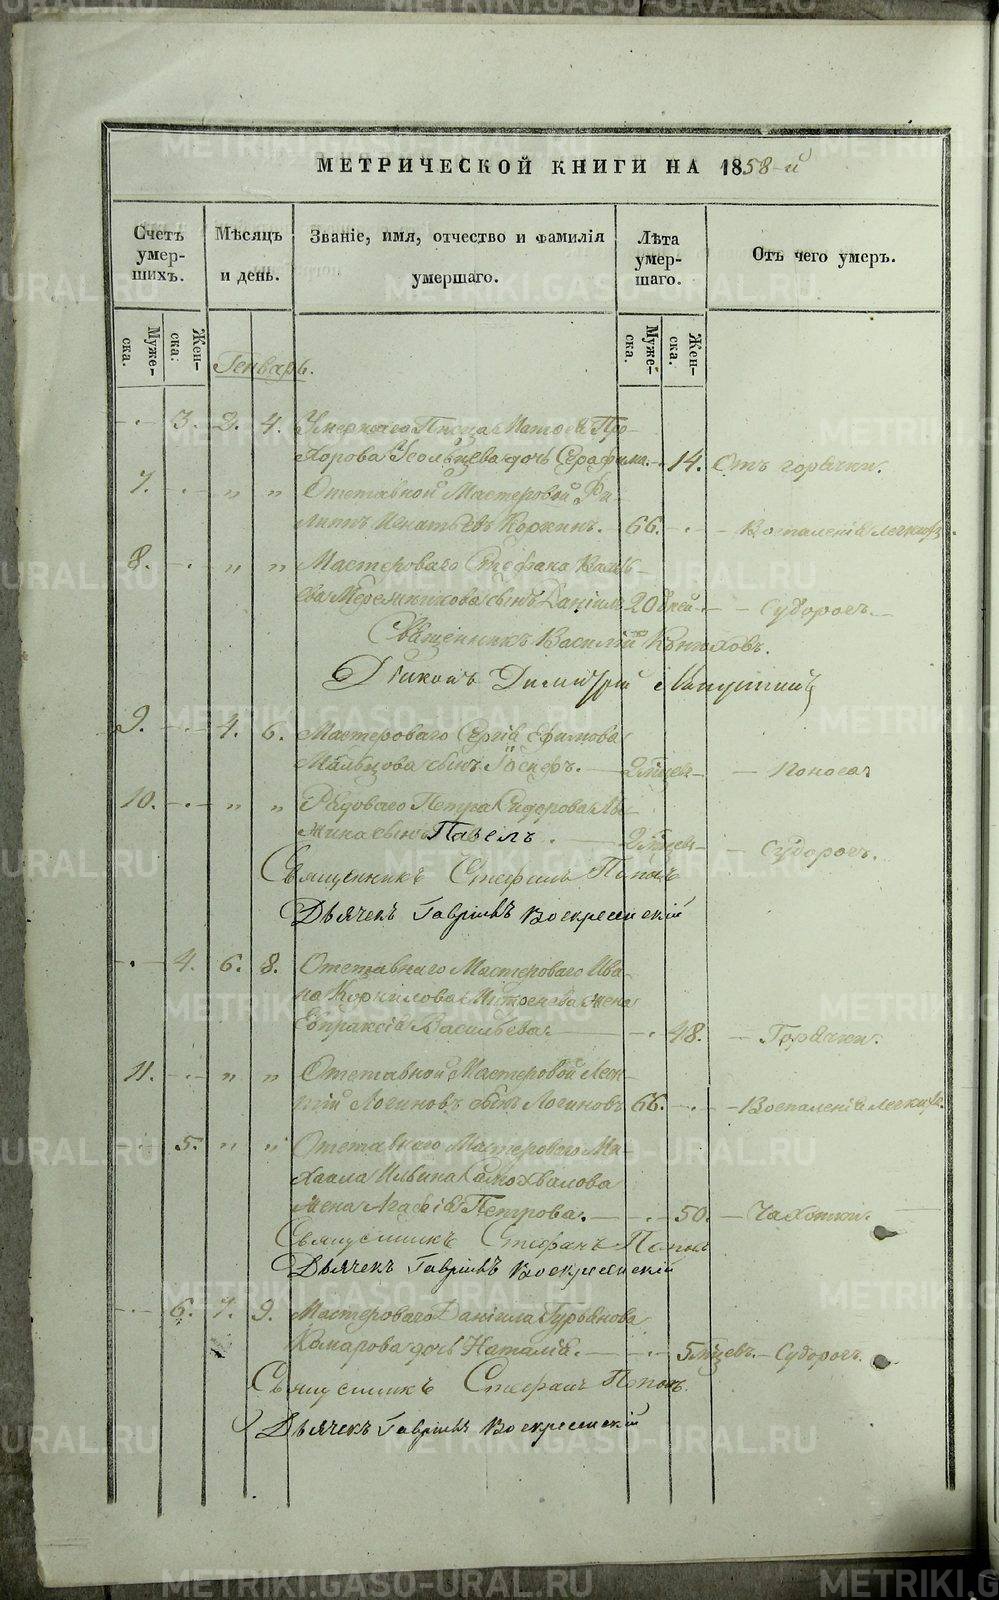 МЕТРИЧЕСКОЙ КНИГИ НА 1858-й
Счетъ умер-шихъ.
Мѣсяцъ и день.
Званіе, имя, отчество и фамилія умершаго.
Лѣта умер-шаго.
Отъ чего умеръ.
Муже-ска.
Жен-ска.
Муже-ска.
Жен-ска.
Генварь.
3. 2. 4. Умершаго Писца
Усольцева дочь Серафима. 14. Отъ горячки.
7. „ „ Отставной Мастеровой Фи-
липпъ Игнатьевъ Коркинъ. 66. Воспаленія легкихъ.
8. „ „ Мастероваго Стефана
сынъ Даніилъ 20 дней Судорогъ.
Священникъ Василій Конюховъ.
Діаконъ Димитрій
9. 4. 6. Мастероваго Сергія Ефимова
Мальцова сынъ Іосифъ. 2 мѣсяц. Поноса
10. „ „ Рядоваго Петра Сидорова
сынъ Павелъ. 2 мѣсяц. Судорогъ.
Священникъ Стефанъ Поповъ
Дьячекъ Гавріилъ Воскресенскій
4. 6. 8. Отставнаго Мастероваго Ива-
на Корнилова жена
Евпраксія Васильева 48. Горячки.
11. „ „ Отставной Мастеровой Леон-
тій Логиновъ сынъ Логиновъ 66. Воспаленія легкихъ.
5. „ „ Отставнаго Мастероваго Ми-
хаила Ильина Самохвалова
жена Агафія Петрова. 50. Чахотки.
Священникъ Стефанъ Поповъ
Дьячекъ Гавріилъ Воскресенскій
6. 7. 9. Мастероваго Даніила Гурьянова
Комарова дочь Наталія. 5 мѣсяцевъ. Судорогъ.
Священникъ Стефанъ Поповъ.
Дьячекъ Гавріилъ Воскресенскій
METRIKI.GASO-URAL.RU